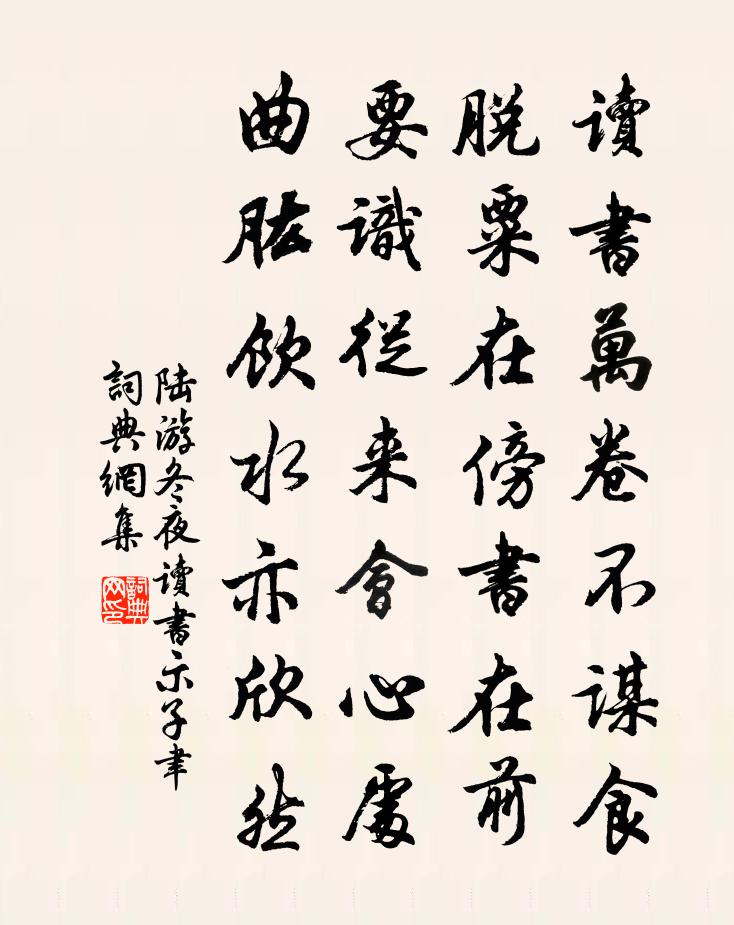 讀書萬卷不謀食
脱粟在傍書在前
要識從来會心處
曲肱飲水亦欣然
陆游冬夜讀書示子聿
詞典網集
詞典网印